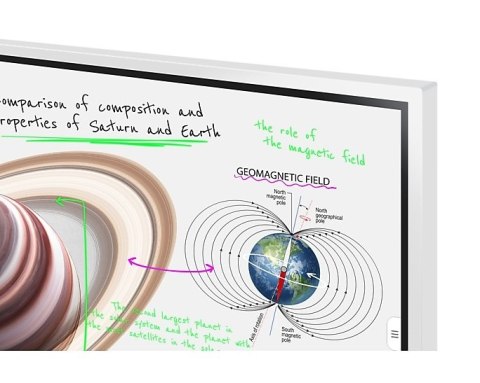 omparison of composition and
roperties of Saturn and Earth
the role of
the magnetic field
GEOMAGNETIC FIELD
North
magnetic
pole
North
geographical
pole
Axis of rotation
South
magnetic
pole
The second largest planet in
the solar system and the planet with
the most satellites in the solar